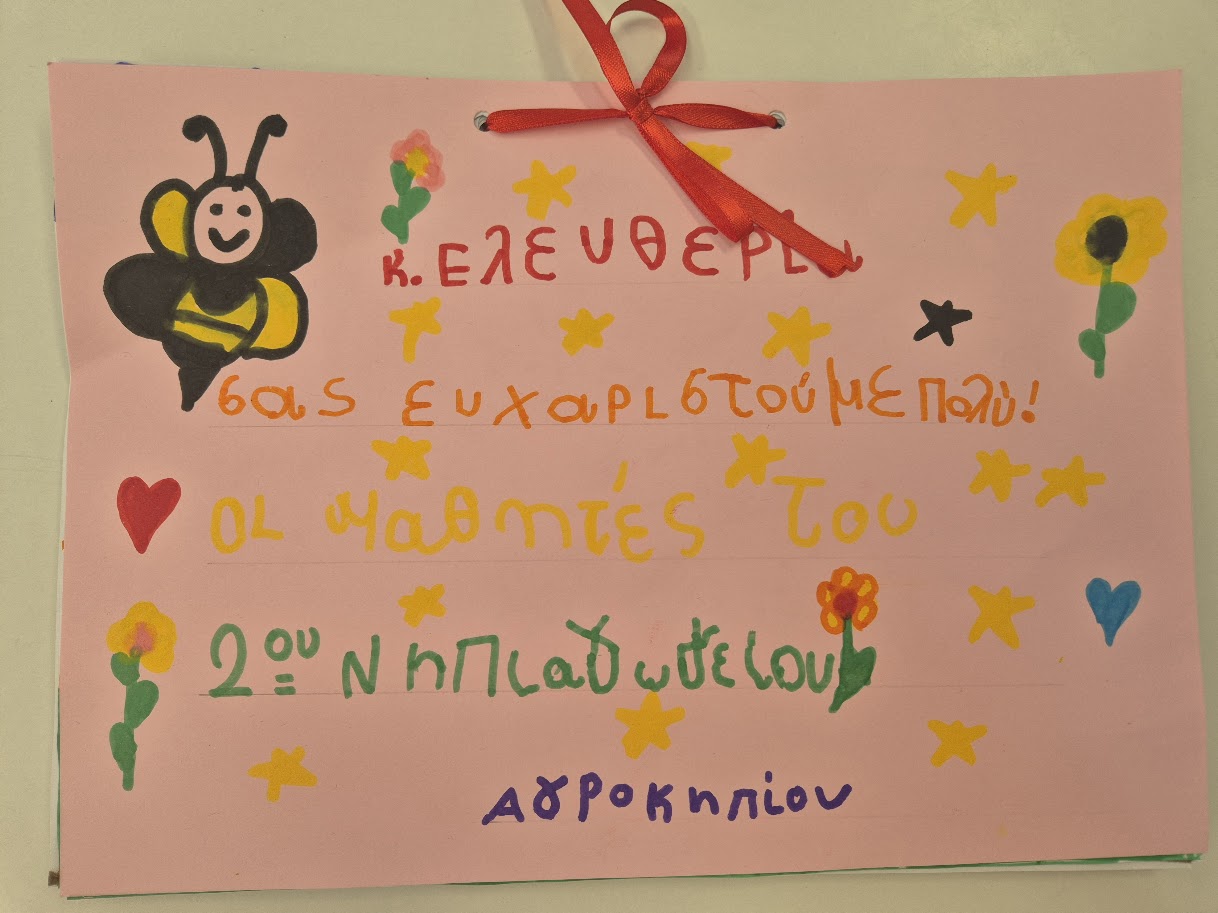 κ. Ελευθερία
σας ευχαριστούμε πολύ!
οι μαθητές του
2ου Νηπιαγωγείου
Αγροκηπίου